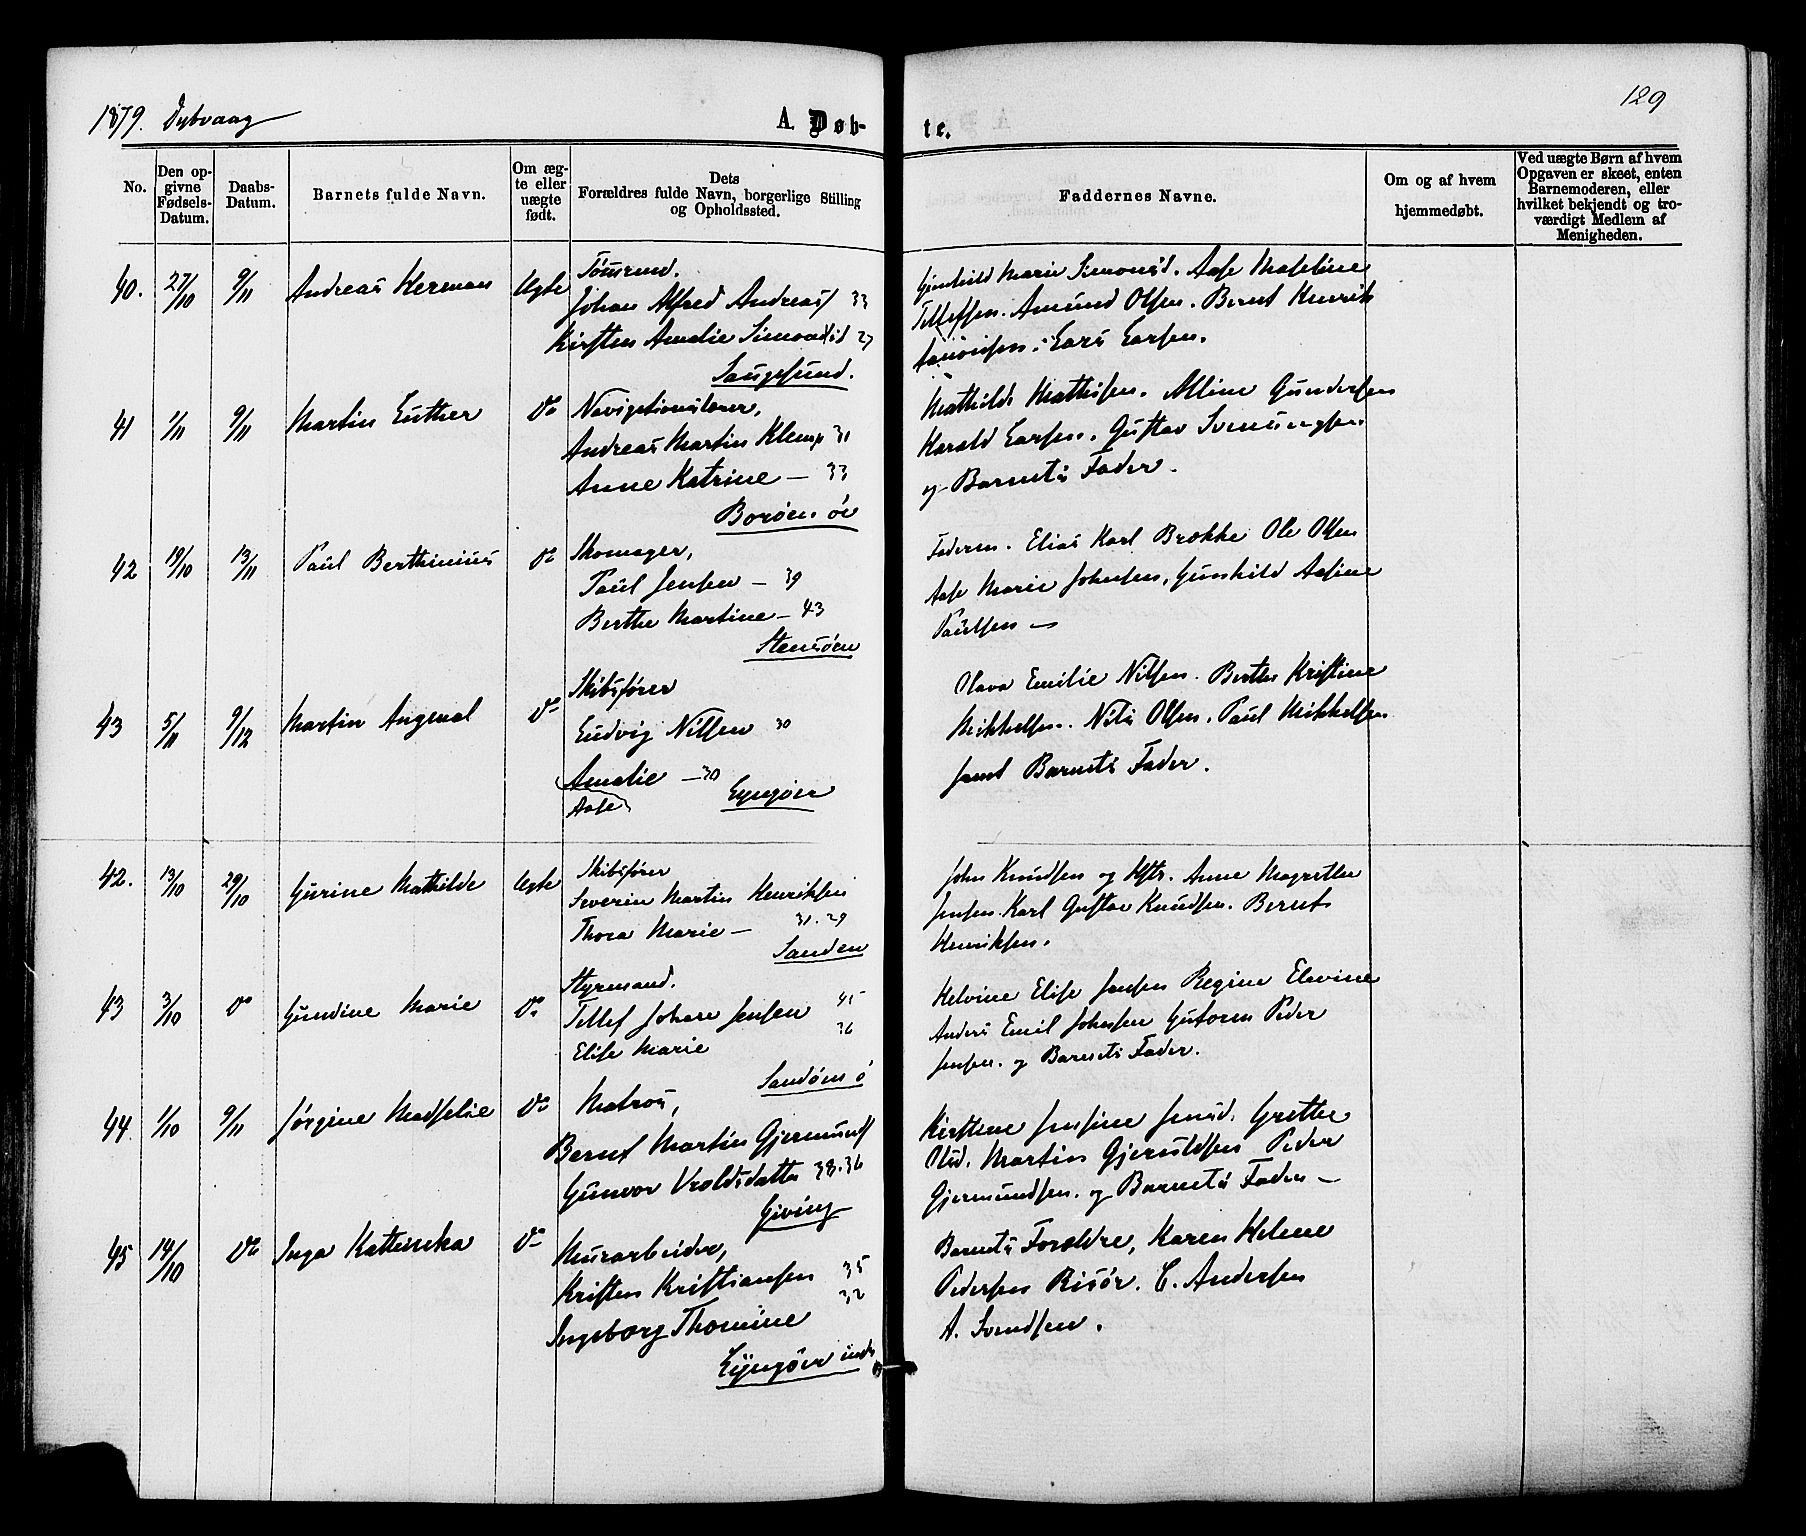 1879. Dybvaag
A. Døb-
te.
129
No.
Den op-
givne
Fødsels-
Datum.
Daabs-
Datum.
Barnets fulde Navn.
Om æg-
te eller
uægte
født.
Dets
Forældres fulde Navn, borgerlige Stilling
og Opholdssted.
Faddernes Navne.
Om og af hvem
hjemmedøbt.
Ved uægte Børn af hvem
Opgaven er skeet, enten
Barnemoderen, eller
hvilket bekjendt og tro-
værdigt Medlem af
Menigheden.
40. 27/10 9/11 Andreas Herman Ægte Tømrmd.
Johan Alfred Andreas 33
Kirsten Amalie Simonsd 27
Saugesund.
Gunhild Marie Simonsd. Aase Maseline
Tellefsen. Amund Olsen. Bernt Henrik
Lars Larsen.
41 1/11 9/11 Martin Luther Do Navigationslærer,
Andreas Martin Klemp 31
Anne Katrine — 33
Borøen ø
Mathilde Mathisen. Alline Gundersen
Harald Larsen. Gustav Svenungsen
og Barnets Fader.
42 19/10 13/11 Paul Berthinius Do Skomager,
Paul Jensen — 39
Berthe Martine — 43
Stensøen
Faderen. Elias Karl Brække Ole Olsen
Aase Marie Johnsen, Gunhild Aasine
Paulsen —
43 5/11 9/12 Martin Angmal Do Skibsfører
Ludvig Nilsen 30
Amalie — 30
Aase
Lyngøer
Olava Emilie Nilsen. Berthe Kristine
Mikkelsen. Nils Olsen. Paul Mikkelsen
samt Barnets Fader.
42. 13/10 29/10 Gurine Mathilde Ægte Skibsfører
Severin Martin Henriksen
Thora Marie — 31. 29
Sanden
John Knudsen og Hstr. Anne Magrethe
Jensen. Karl Gustav Knudsen. Bernt
Henriksen.
43 3/10 Do Gundine Marie Do Styrmand.
Tellef Johan Jensen 45
Elise Marie 36
Sandøen ø
Helvine Elise Jensen Regine Elevine
Anders Emil Johnsen Gutorm Peder
Jensen. og Barnets Fader.
44. 1/10 9/11 Jørgine Madselie Do Matros,
Bernt Martin Gjermunds
Gunvor Vroldsdatter 38. 36
Giving
Kirstene Jensine Jensd. Grethe
Olsd. Martin Gjeruldsen Peder
Gjermundsen. og Barnets Fader —
45 14/10 Do Inga Kattinka Do Murarbeider,
Kristen Kristiansen 35
Ingeborg Thomine 32
Lyngøer inds
Barnets Forældre, Karen Helene
Pedersen Risør. C. Andersen
A. Svendsen.